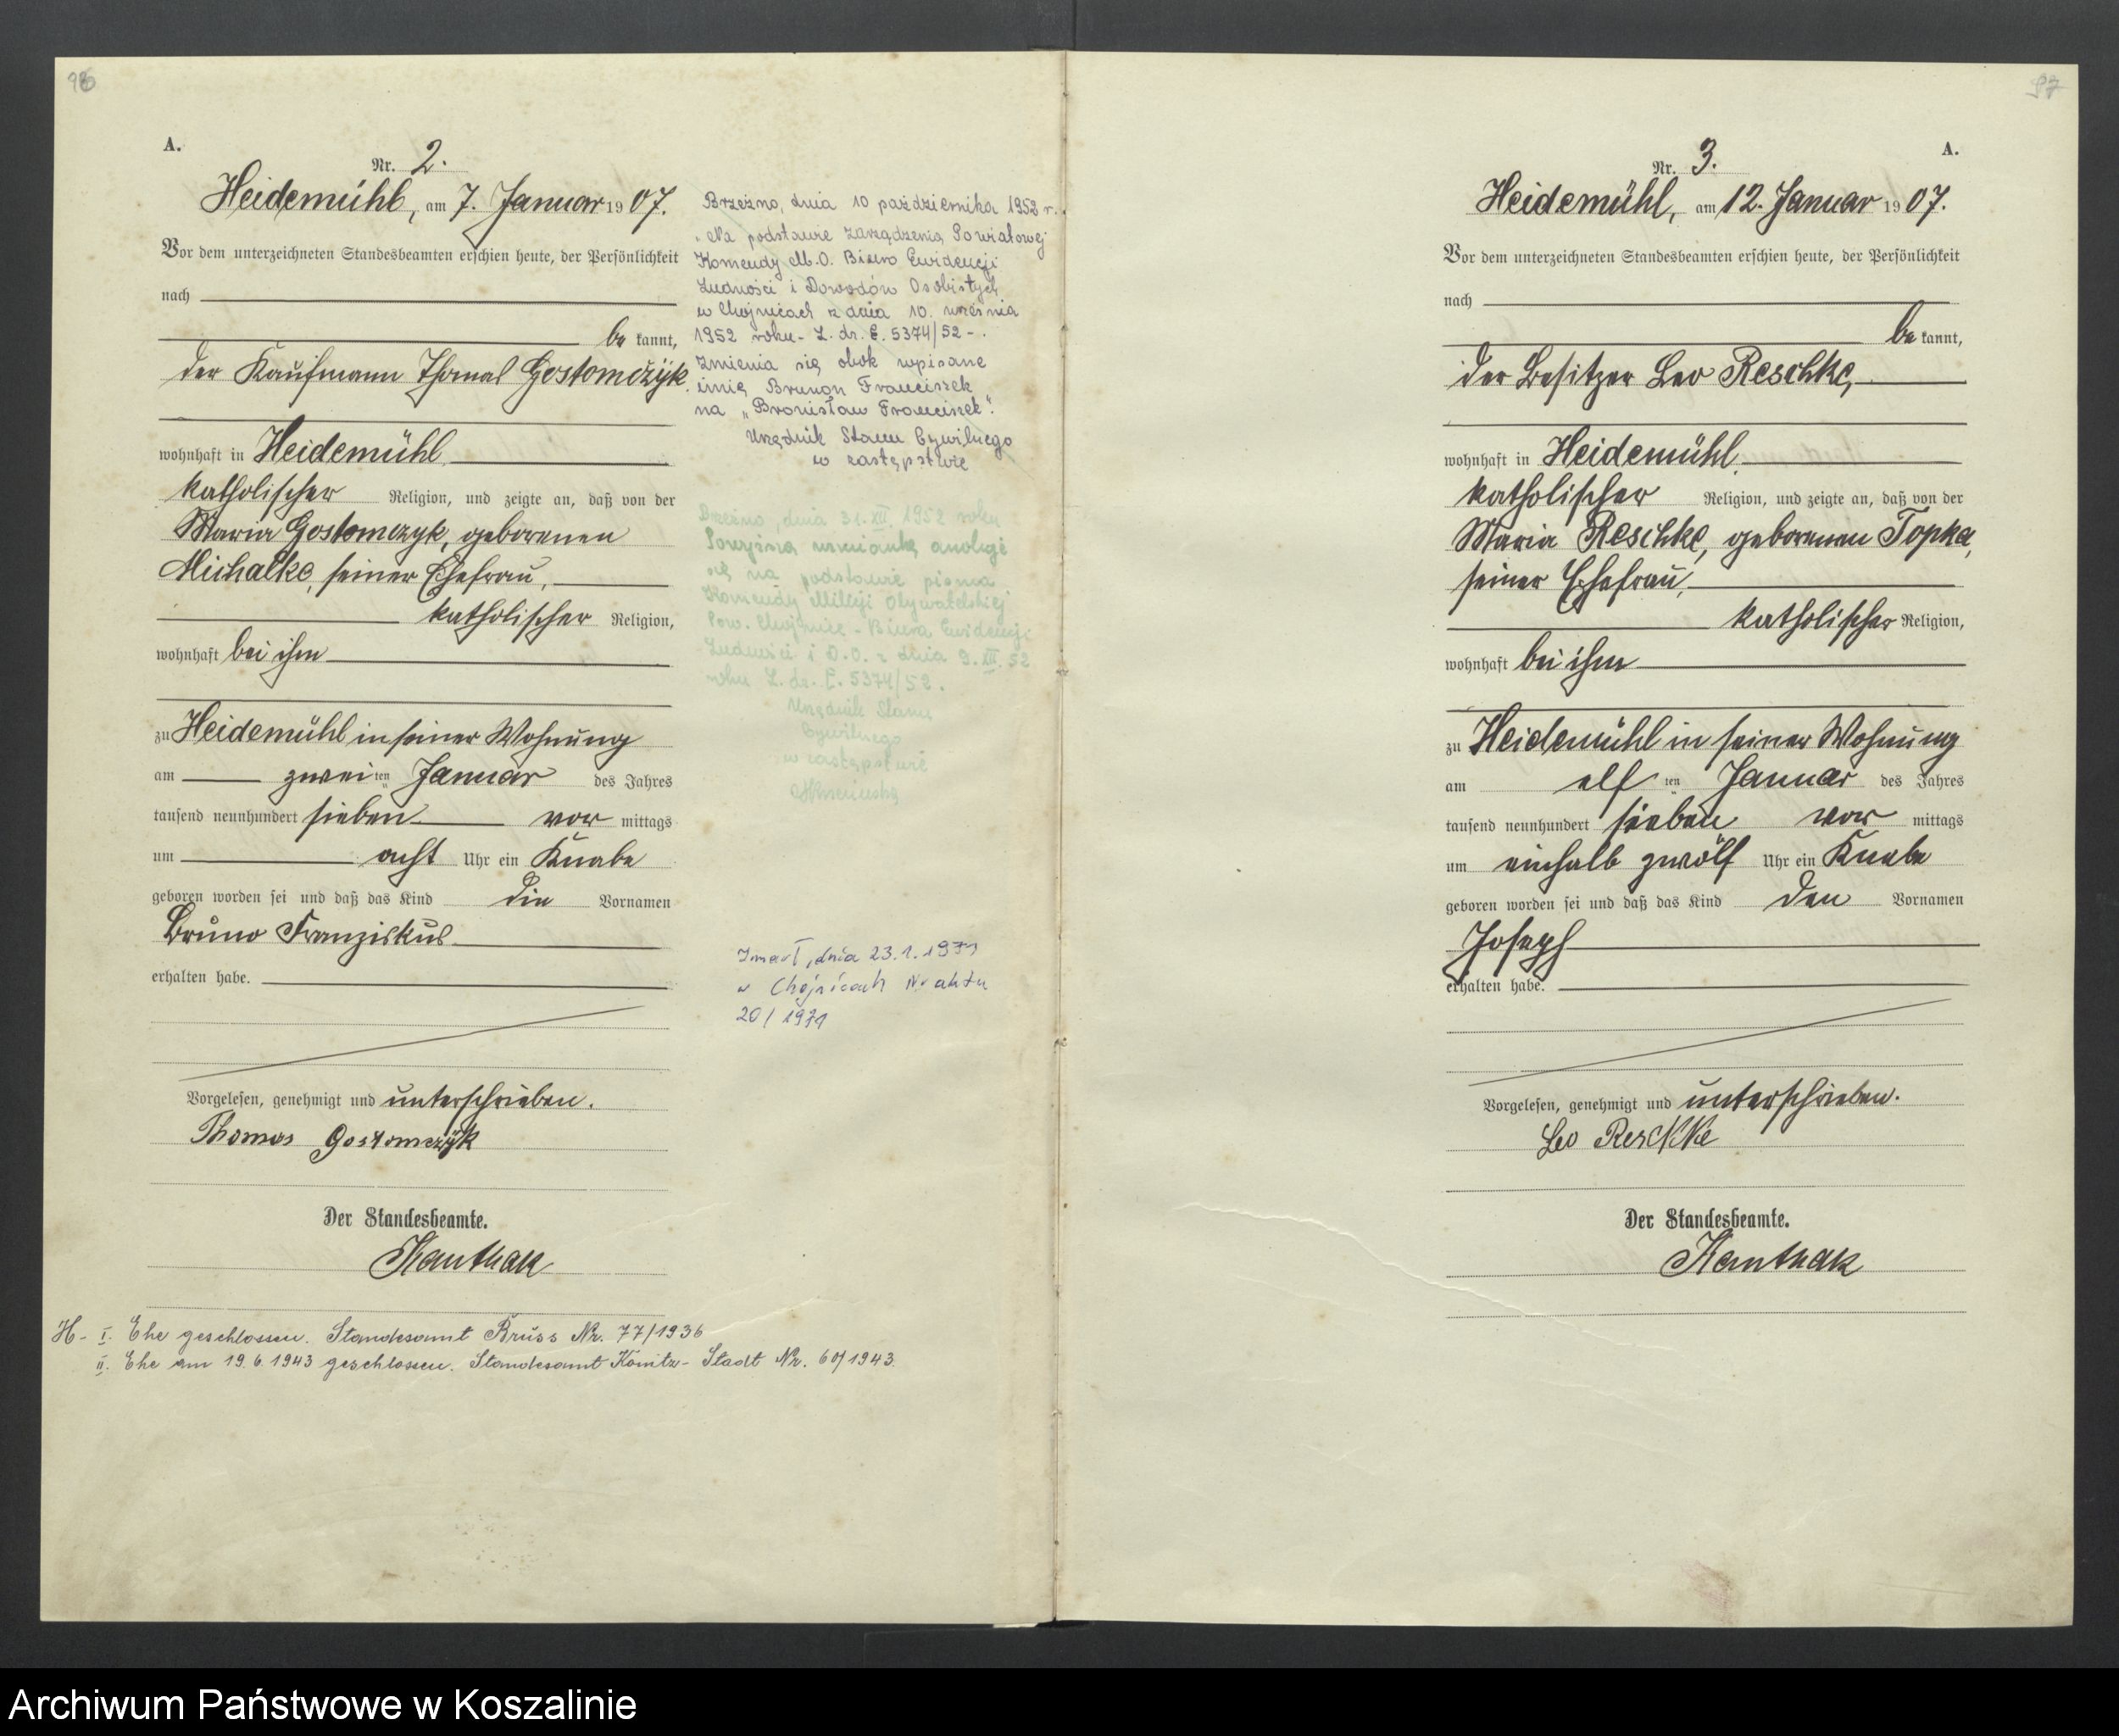 96
A.
Nr. 2.
Heidemühl, am 7. Januar 1907.
Vor dem unterzeichneten Standesbeamten erschien heute, der Persönlichkeit
nach
be kannt,
der Kaufmann Thomas Gostomczyk
wohnhaft in Heidemühl
katholischer Religion, und zeigte an, daß von der
Maria Gostomczyk, geborenen
Michalke, seiner Ehefrau,
katholischer Religion,
wohnhaft bei ihm
zu Heidemühl in seiner Wohnung
am zwei ten Januar des Jahres
tausend neunhundert sieben vor mittags
um acht Uhr ein Knabe
geboren worden sei und daß das Kind die Vornamen
Bruno Franziskus
erhalten habe.
Vorgelesen, genehmigt und unterschrieben.
Thomas Gostomczyk
Der Standesbeamte.
Kanthak
H- I. Ehe geschlossen. Standesamt Bruss Nr. 77/1936
II. Ehe am 19.6.1943 geschlossen. Standesamt Könitz-Stadt Nr. 60/1943.
Brzeźno, dnia 10 października 1952 r.
Na podstawie zarządzenia Powiatowej
Komendy M.O. Biuro Ewidencji
Ludności i Dowodów Osobistych
w Chojnicach z dnia 10. września
1952 roku - L. dz. E. 5374/52 -.
zmienia się obok wpisane
imię Brunon Franciszek
na „Bronisław Franciszek".
Urzędnik Stanu Cywilnego
w zastępstwie
Brzeźno, dnia 31.XII. 1952 roku
Powyższą wzmiankę anuluje
się na podstawie pisma
Komendy Milicji Obywatelskiej
Pow. Chojnice - Biura Ewidencji
Ludności i D.O. z dnia 9.XII.52
roku L. dz. E. 5374/52.
Urzędnik Stanu
Cywilnego
w zastępstwie
Zmarł, dnia 23.1.1971
w Chojnicach Nr aktu
20/1971
97
A.
Nr. 3.
Heidemühl, am 12. Januar 1907.
Vor dem unterzeichneten Standesbeamten erschien heute, der Persönlichkeit
nach
be kannt,
der Besitzer Leo Reschke,
wohnhaft in Heidemühl
katholischer Religion, und zeigte an, daß von der
Maria Reschke, geborenen Topka,
seiner Ehefrau,
katholischer Religion,
wohnhaft bei ihm
zu Heidemühl in seiner Wohnung
am elf ten Januar des Jahres
tausend neunhundert sieben vor mittags
um einhalb zwölf Uhr ein Knabe
geboren worden sei und daß das Kind den Vornamen
Joseph
erhalten habe.
Vorgelesen, genehmigt und unterschrieben.
Leo Reschke
Der Standesbeamte.
Kanthak
Archiwum Państwowe w Koszalinie